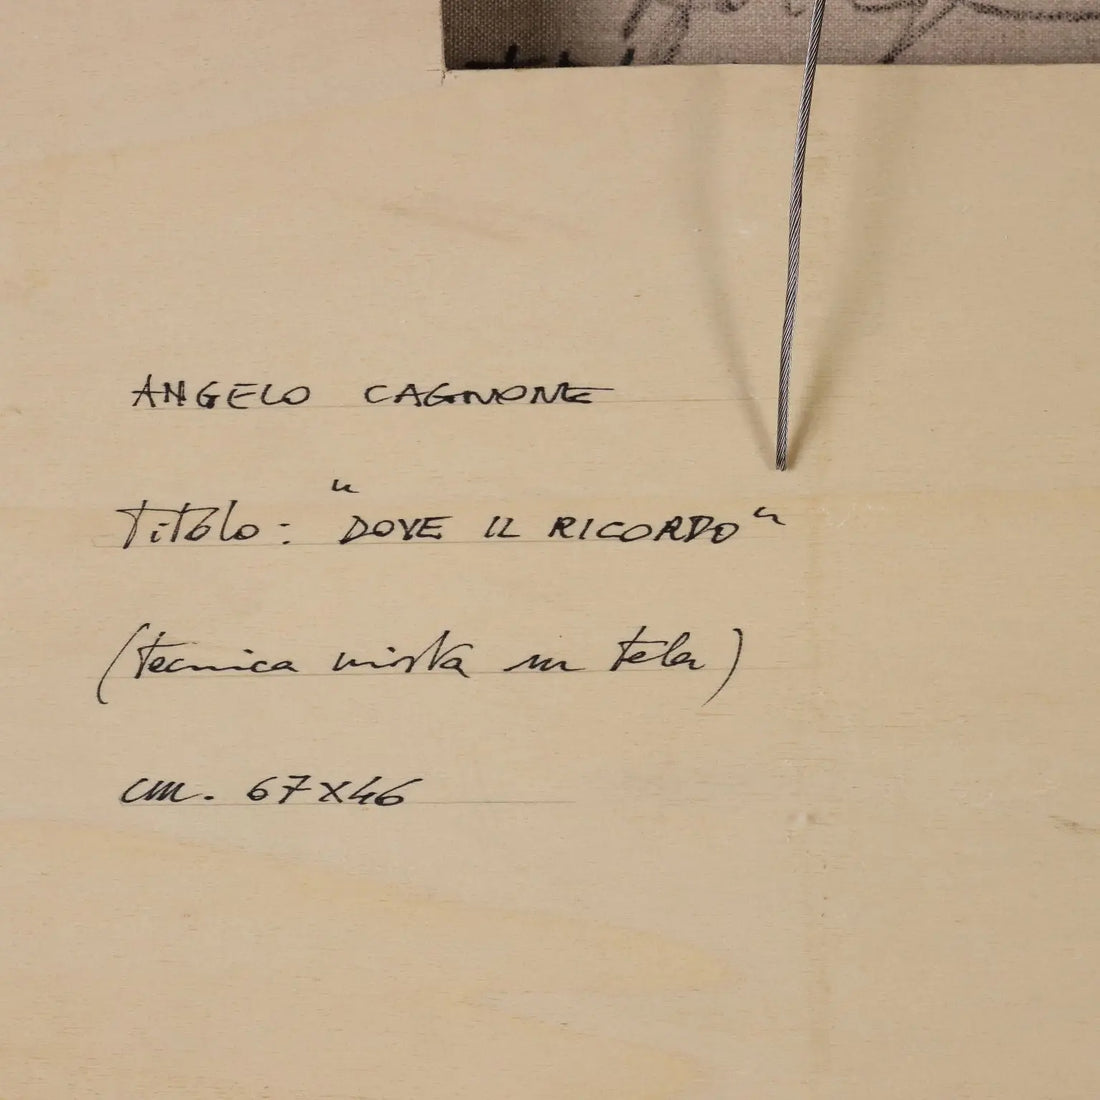 ANGELO CAGNONE
Titolo: "DOVE IL RICORDO"
(tecnica mista su tela)
cm. 67x46